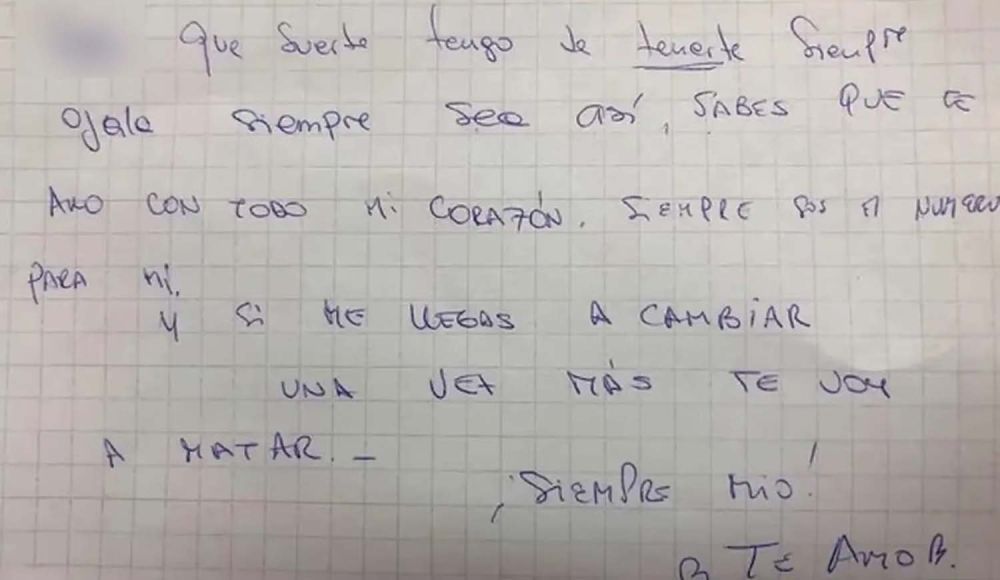 Que suerte tengo de tenerte siempre
Ojala siempre sea así, SABES QUE TE
AMO CON TODO Mi CORAZÓN. SIEMPRE SOS El NUMERO
PARA Mi.
Y Si ME LLEGAS A CAMBiAR
UNA VEZ MÁS TE VOY
A MATAR. –
¡SiEMPRE Mio!
TE AMO B.